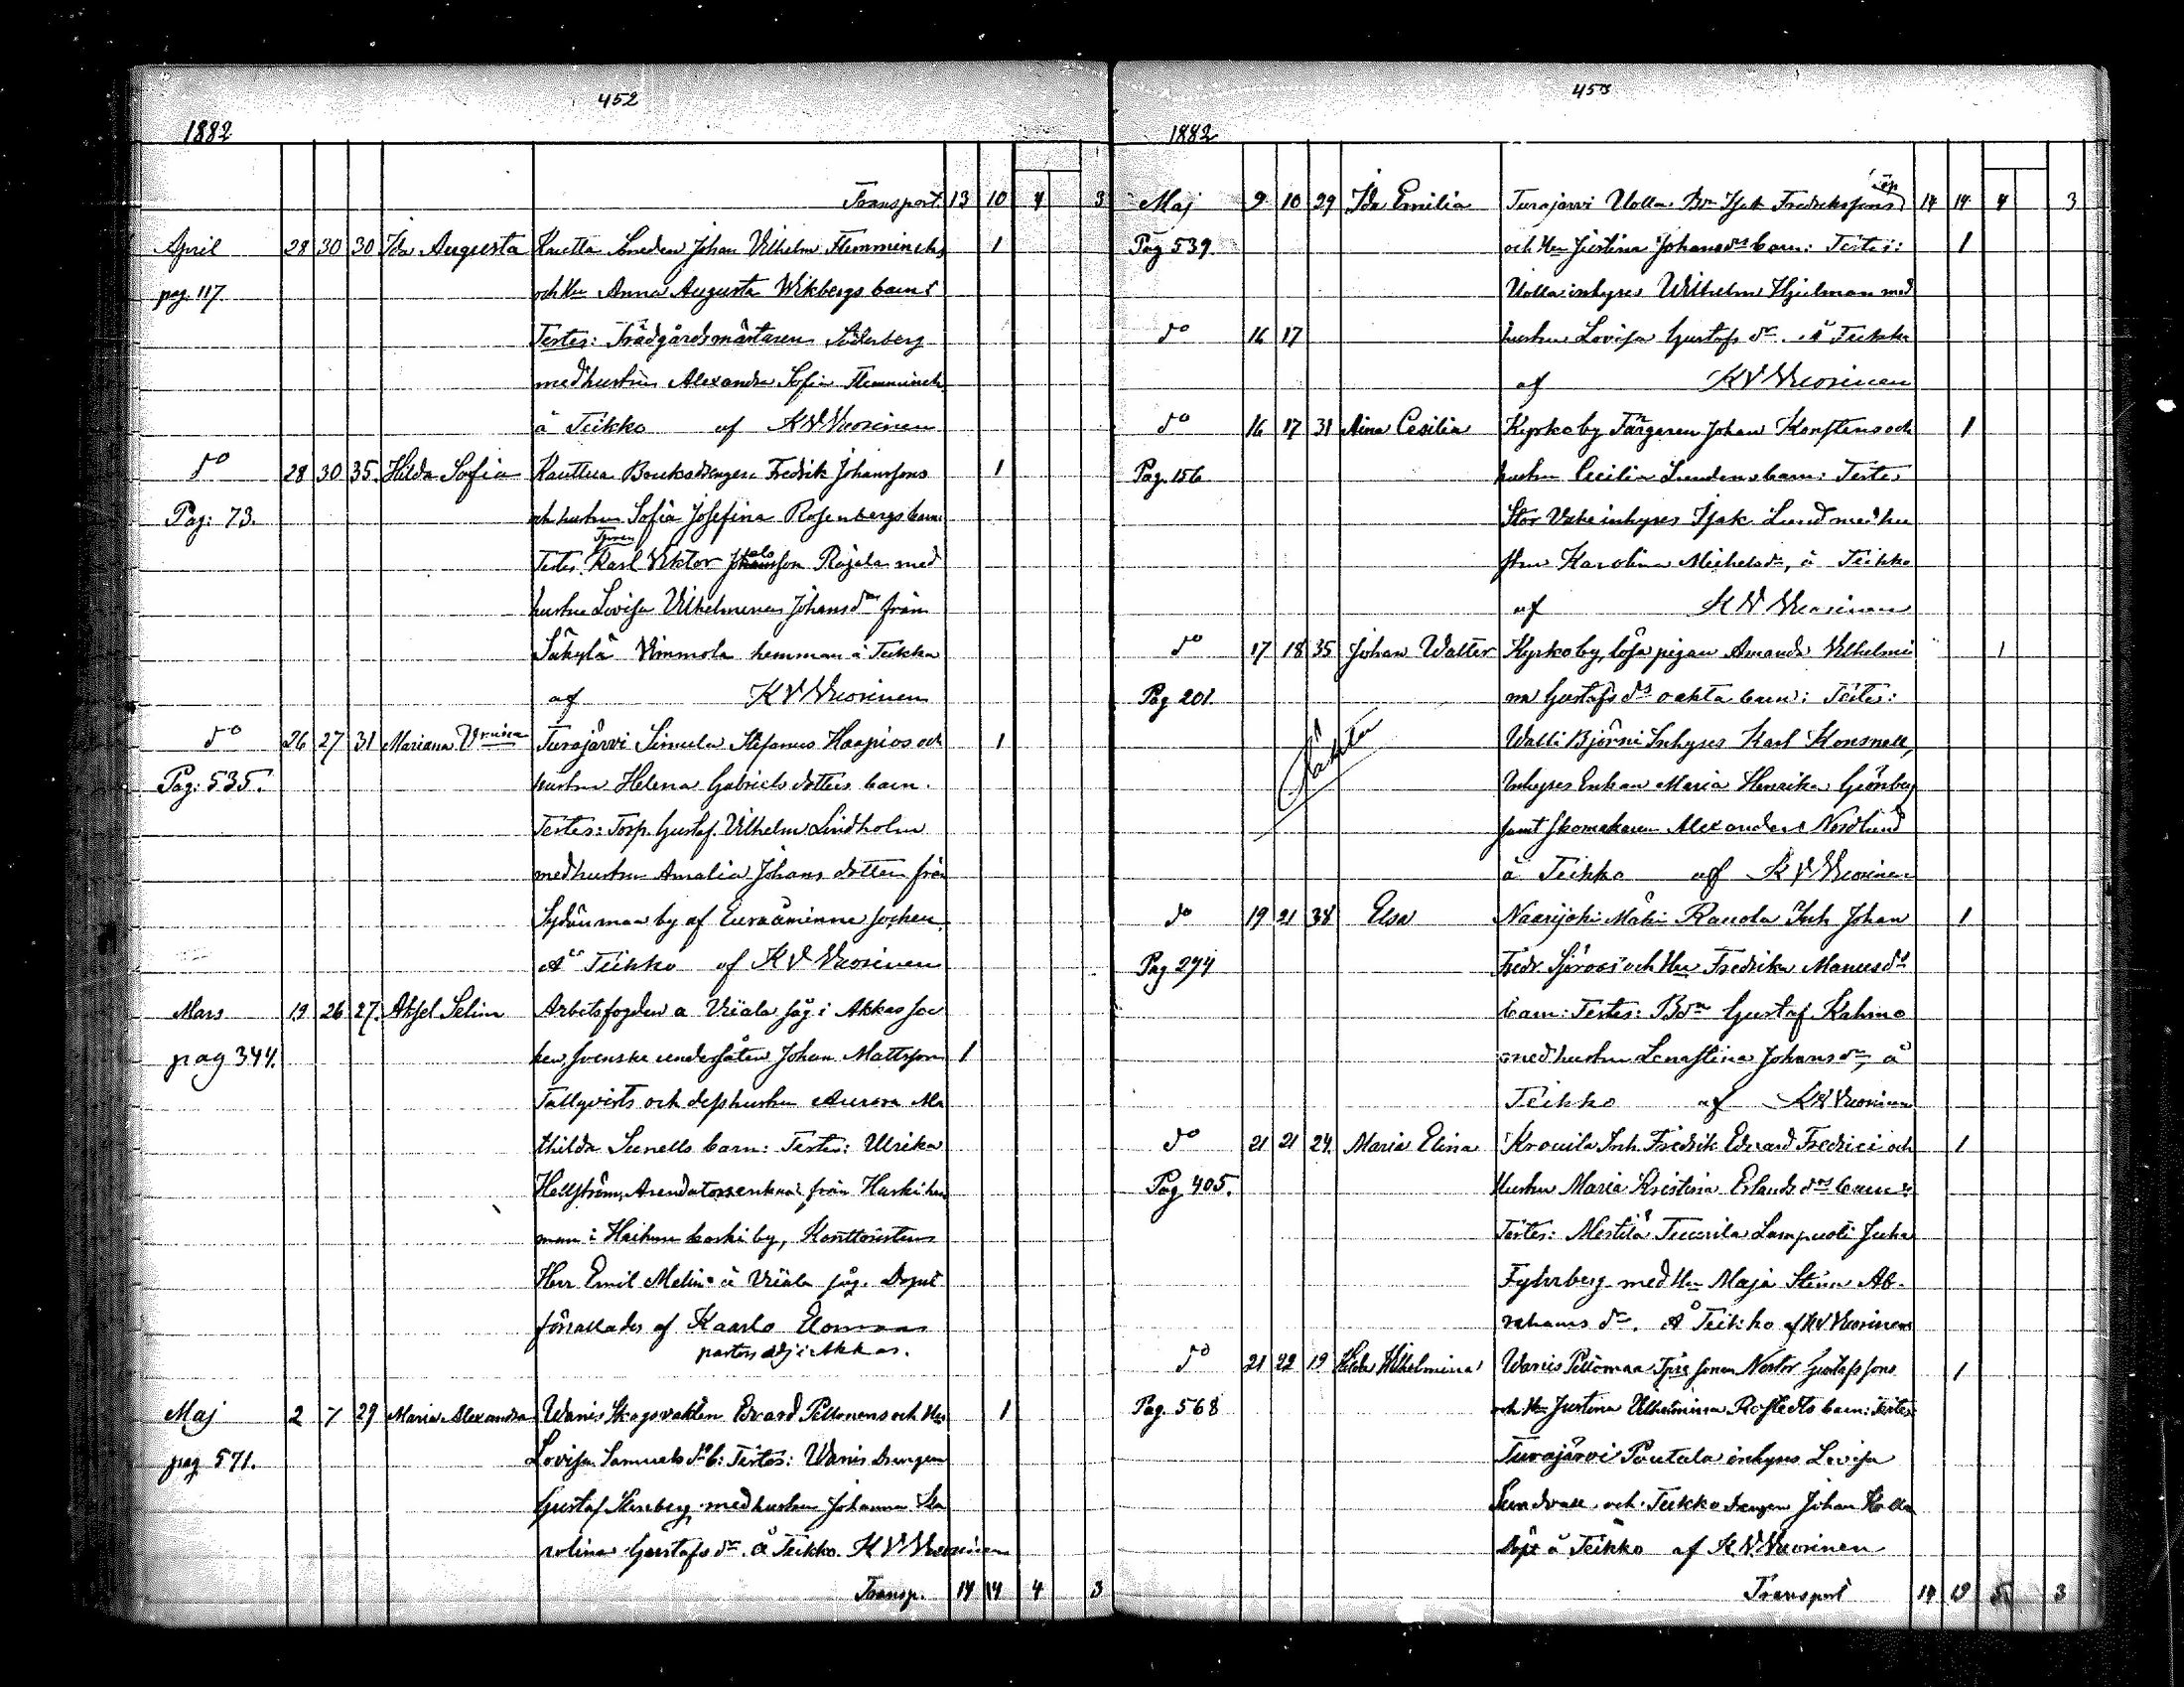 452
1882
Transport. 13 10 4 3
April 28 30 30 Ida Augusta Kauttua Smeden Johan Vilhelm Flemminchs 1
pag. 117 och Hu Anna Augusta Wikbergs barn:
Testes: Trädgårdsmästaren Söderberg
med hustru Alexandra Sofia Flemminch
å Teikko af K V Vuorinen
do 28 30 35. Hilda Sofia Kauttua Bruksdrengen Fredrik Johanssons 1
Pag: 73. och hustru Sofia Josefina Rosenbergs barn:
Testes Karl Viktor Rajala med
hustru Lovisa Vilhelmina Johansdr från
Säkylä Vimmola hemman å Teikko
af K V Vuorinen
do 26 27 31 Mariana Turajärvi Simula Stefanus Haapios och 1
Pag: 535. hustru Helena Gabriels dotters barn.
Testes: Torp. Gustaf Vilhelm Lindholm
med hustru Amalia Johans dotter från
Sydänmaa by af Euraåminne socken.
Å Teikko af K V Vuorinen
Mars 19 26 27. Aksel Selim Arbetsfogden å Viiala såg i Akkas soc
pag 344. ken, svenske undersåten Johan Mattsson 1
Tallqvists och dess hustru Aurora Ma
thilda Sunells barn: Testes: Ulrika
Hellström, Arendatorsenkan från Huski hem
man i Haihunkoski by, Konttoristen
Herr Emil Melin å Viiala såg. Dopet
förrättades af Kaarlo Elomaa
pastors adj i Akkas.
Maj 2 7 29 Maria Alexandra Wanis Skogsvakten Edvard Peltonens och Hu 1
pag 571. Lovisa Samuels dr b: Testes: Wanis Drengen
Gustaf Stenberg med hustru Johanna Ka
rolina Gustafs dr. å Teikko. K V Vuorinen
Transp. 14 14 4 3
453
1882
Maj 9 10 29 Ida Emilia Turajärvi Uolla Bn Isak Fredrikssons 14 14 4 3
Pag 539. och Hu Justina Johansdrs barn: Testes: 1
Uolla inhyses Wilhelm Hjelman med
do 16 17 hustru Lovisa Gustafs dr. Å Teikko
af K V Vuorinen
do 16 17 31 Aina Cecilia Kyrkoby Färgaren Johan Korstens och 1
Pag. 156 hustru Cecilia Lundens barn: Testes
Stor Vahe inhyses Isak Lund med hu
stru Karolina Michelsdr, å Teikko
af K V Vuorinen
do 17 18 35 Johan Walter Kyrkoby, lösa pigan Amanda Vilhelmi 1
Pag 201. na Gustafs drs oäkta barn: Testes:
Oäkta Walli Björni Inhyses Karl Konsnell,
Inhyses Enkan Maria Henrika Grönberg
samt skomakaren Alexander Nordlund
å Teikko af K V Vuorinen
do 19 21 38 Elsa Naarijoki Mäki Rauola Inh Johan 1
Pag 274 Fredr. Sjöroos och Hu Fredrika Manusdrs
barn: Testes: Bdn Gustaf Kahmo
med hustru Lenastina Johansdr, å
Teikko af K V Vuorinen
do 21 21 24. Maria Elina Krouila Inh. Fredrik Edvard Fredrici och 1
Pag. 405. Hustru Maria Kristina Erlands drs barn:
Testes: Mestilä Tuomila Lampuoti Juha
Fyhrberg med Hu Maja Stina Ab-
rahams dr. Å Teikko af K V Vuorinen
do 21 22 19 Hilda Wilhelmina Wanis Peltomaa sonen Nestor Gustafssons 1
Pag. 568 och Hu Justina Vilhelmina Rostedts barn: Testes
Turajärvi Pautala inhyses Lovisa
Sundvall och Teikko drengen Johan Kolla
Döpt å Teikko af K V Vuorinen
Transport 14 19 5 3